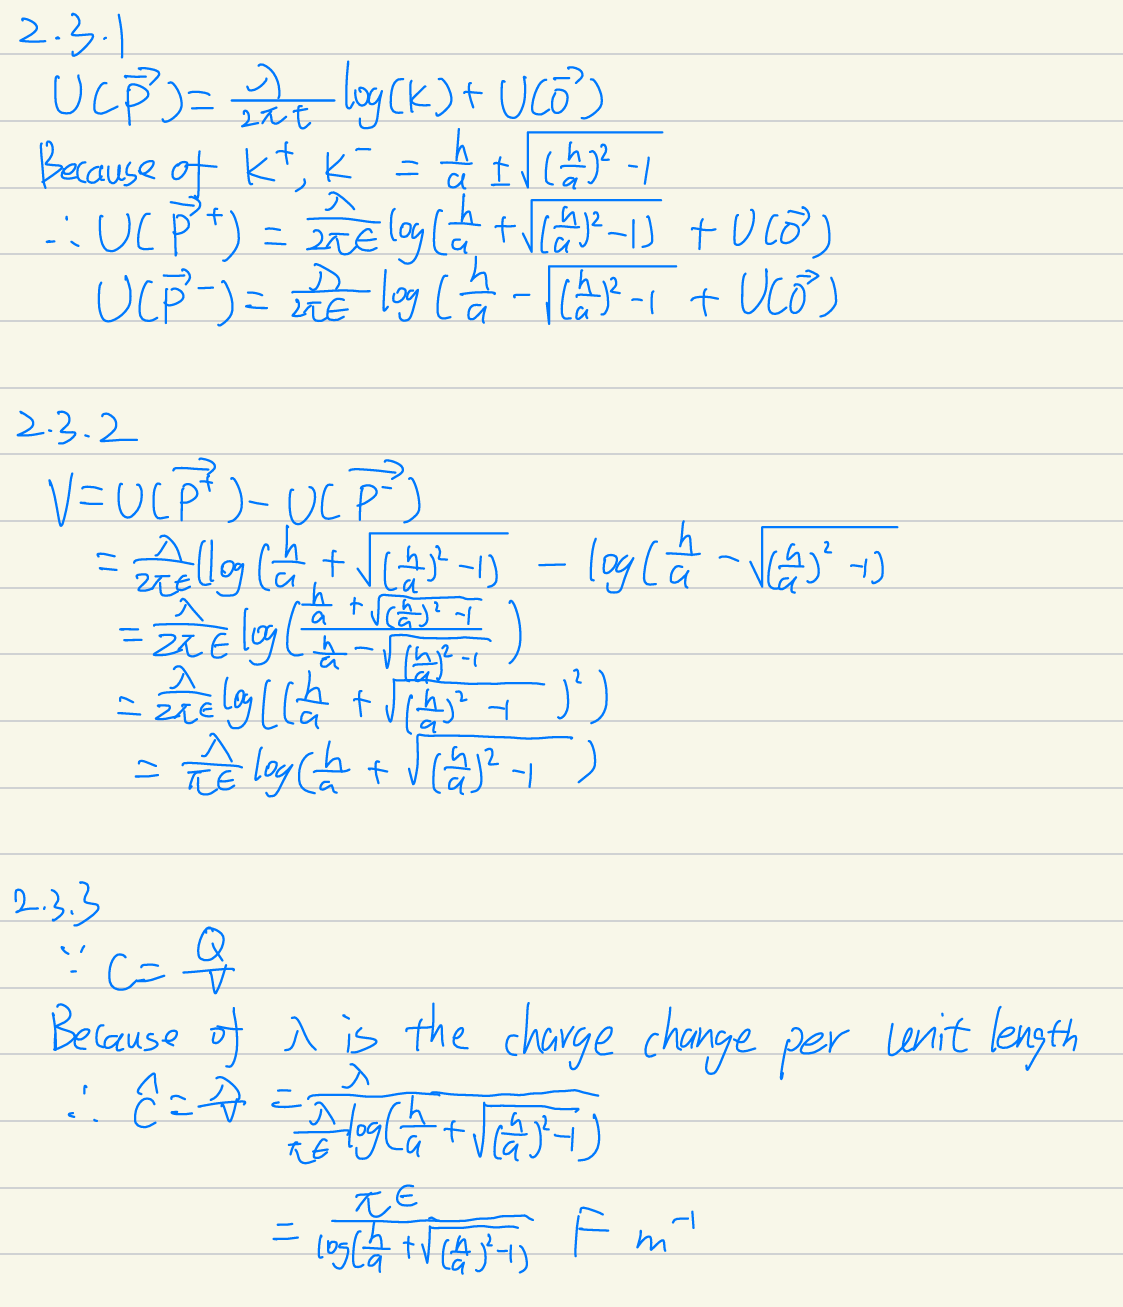 2.3.1
U(P⃗) = λ/(2πt) log(K) + U(O⃗)
Because of K⁺, K⁻ = h/a ± √((h/a)² - 1)
∴ U(P⃗⁺) = λ/(2πϵ) log(h/a + √((h/a)² - 1) + U(O⃗)
U(P⃗⁻) = λ/(2πϵ) log(h/a - √((h/a)² - 1 + U(O⃗)
2.3.2
V = U(P⃗⁺) - U(P⃗⁻)
= λ/(2πϵ) (log(h/a + √((h/a)² - 1) - log(h/a - √((h/a)² - 1)
= λ/(2πϵ) log((h/a + √((h/a)² - 1)/(h/a - √((h/a)² - 1))
= λ/(2πϵ) log((h/a + √((h/a)² - 1)²)
= λ/(πϵ) log(h/a + √((h/a)² - 1)
2.3.3
∵ C = Q/V
Because of λ is the charge change per unit length
∴ Ĉ = λ/V = λ/(λ/(πϵ) log(h/a + √((h/a)² - 1))
= πϵ/log(h/a + √((h/a)² - 1) F m⁻¹